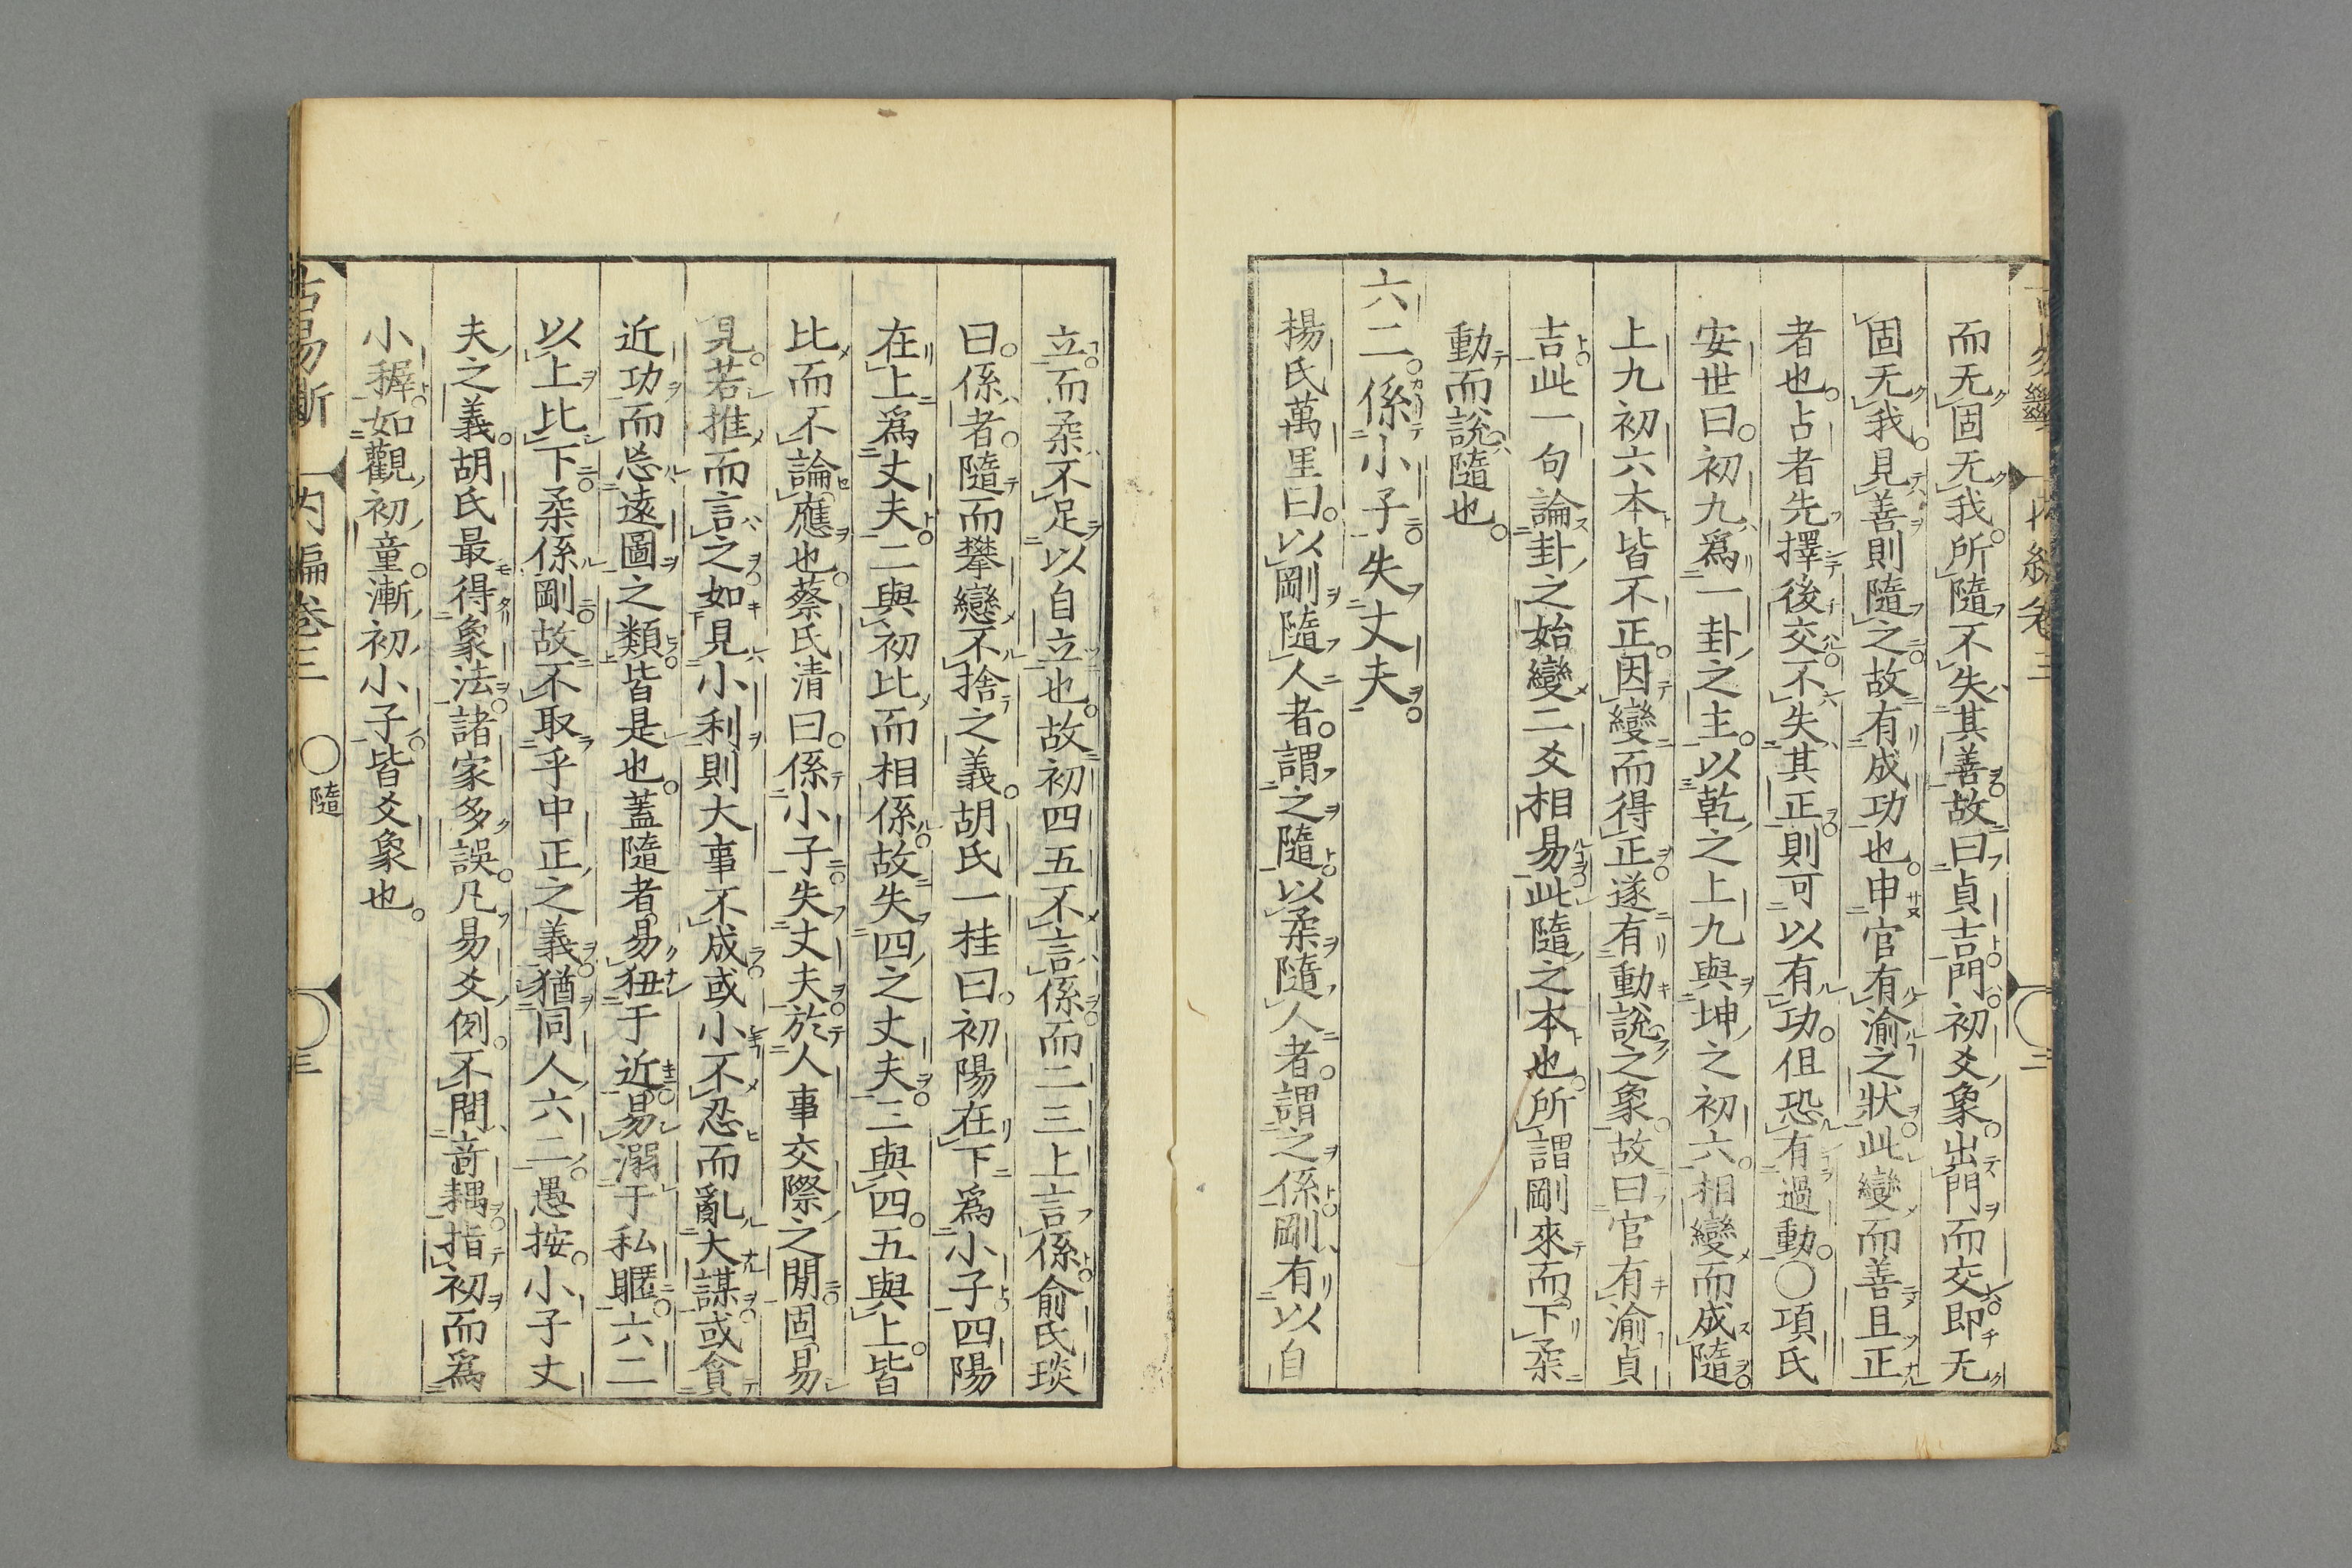 而无固无我所隨不失其善故曰貞吉門初爻象出門而交即无
固无我見善則隨之故有成功也申官有渝之狀此變而善且正
者也占者先擇後交不失其正則可以有功但恐有過動〇項氏
安世曰初九爲一卦之主以乾之上九與坤之初六相變而成隨
上九初六本皆不正因變而得正遂有動說之象故曰官有渝貞
吉此一句論卦之始變二爻相易此隨之本也所謂剛來而下柔
動而說隨也
六二係小子失丈夫
楊氏萬里曰以剛隨人者謂之隨以柔隨人者謂之係剛有以自
立而柔不足以自立也故初四五不言係而二三上言係俞氏琰
曰係者隨而攀戀不捨之義胡氏一桂曰初陽在下爲小子四陽
在上爲丈夫二與初比而相係故失四之丈夫三與四五與上皆
比而不論應也蔡氏清曰係小子失丈夫於人事交際之間固易
見若推而言之如見小利則大事不成或小不忍而亂大謀或貪
近功而忘遠圖之類皆是也蓋隨者易狃于近易溺于私暱六二
以上比下柔係剛故不取乎中正之義猶同人六二愚按小子丈
夫之義胡氏最得象法諸家多誤凡易爻例不問竒耦指初而爲
小穉如觀初童漸初小子皆爻象也
古易斷 内編卷三 〇隨 三